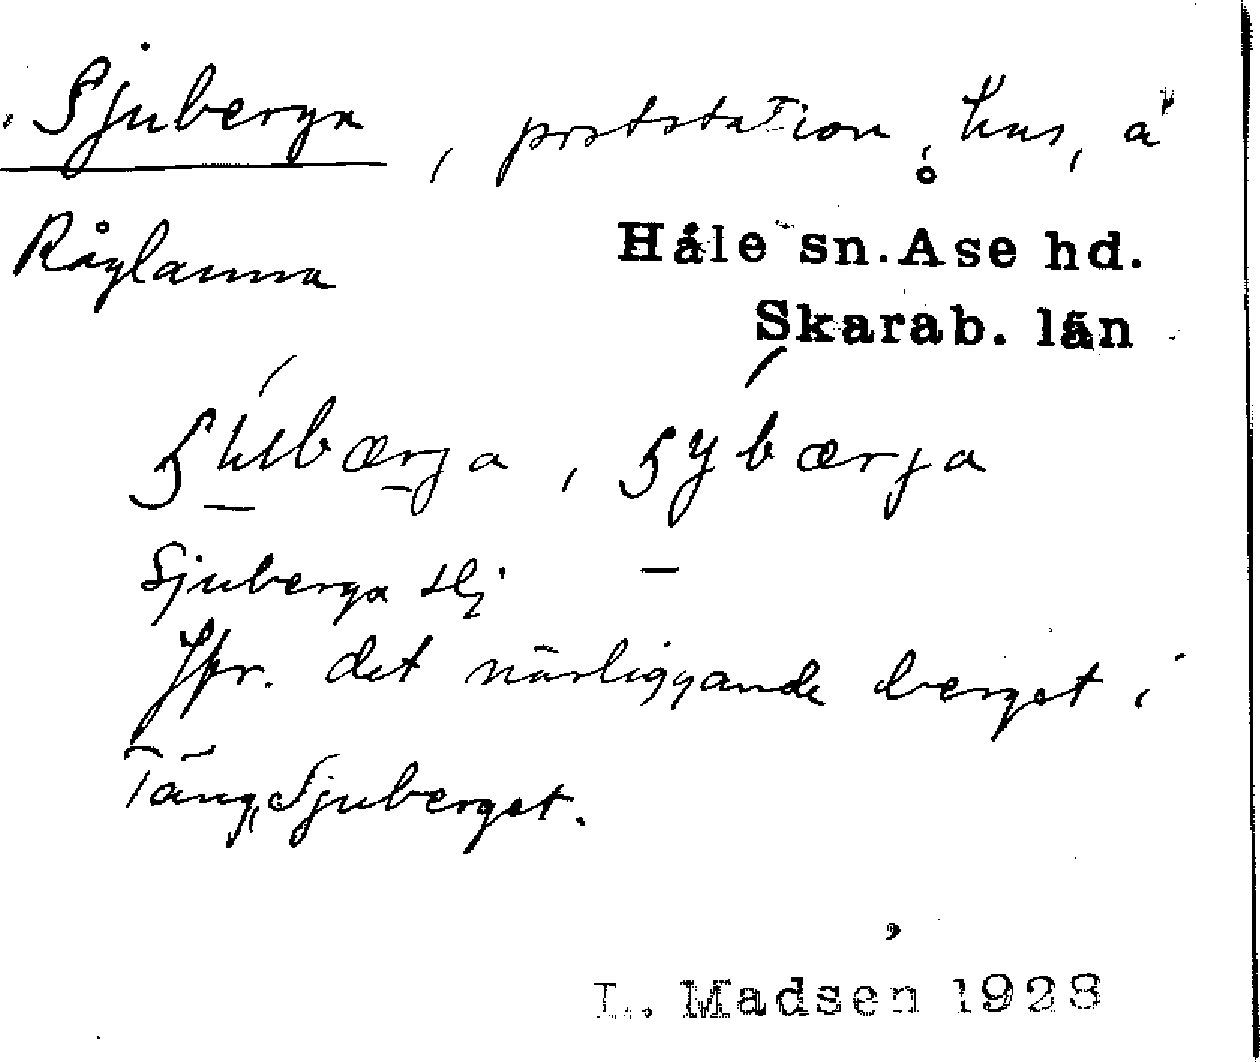 Sjuberga, poststation, hus, å
Råglanna
Håle sn. Åse hd.
Skarab. län
ʂʉbærja, ʂybærja
Sjuberga
Jfr. det närliggande berget i
Täng, Sjuberget.
L. Madsen 1928